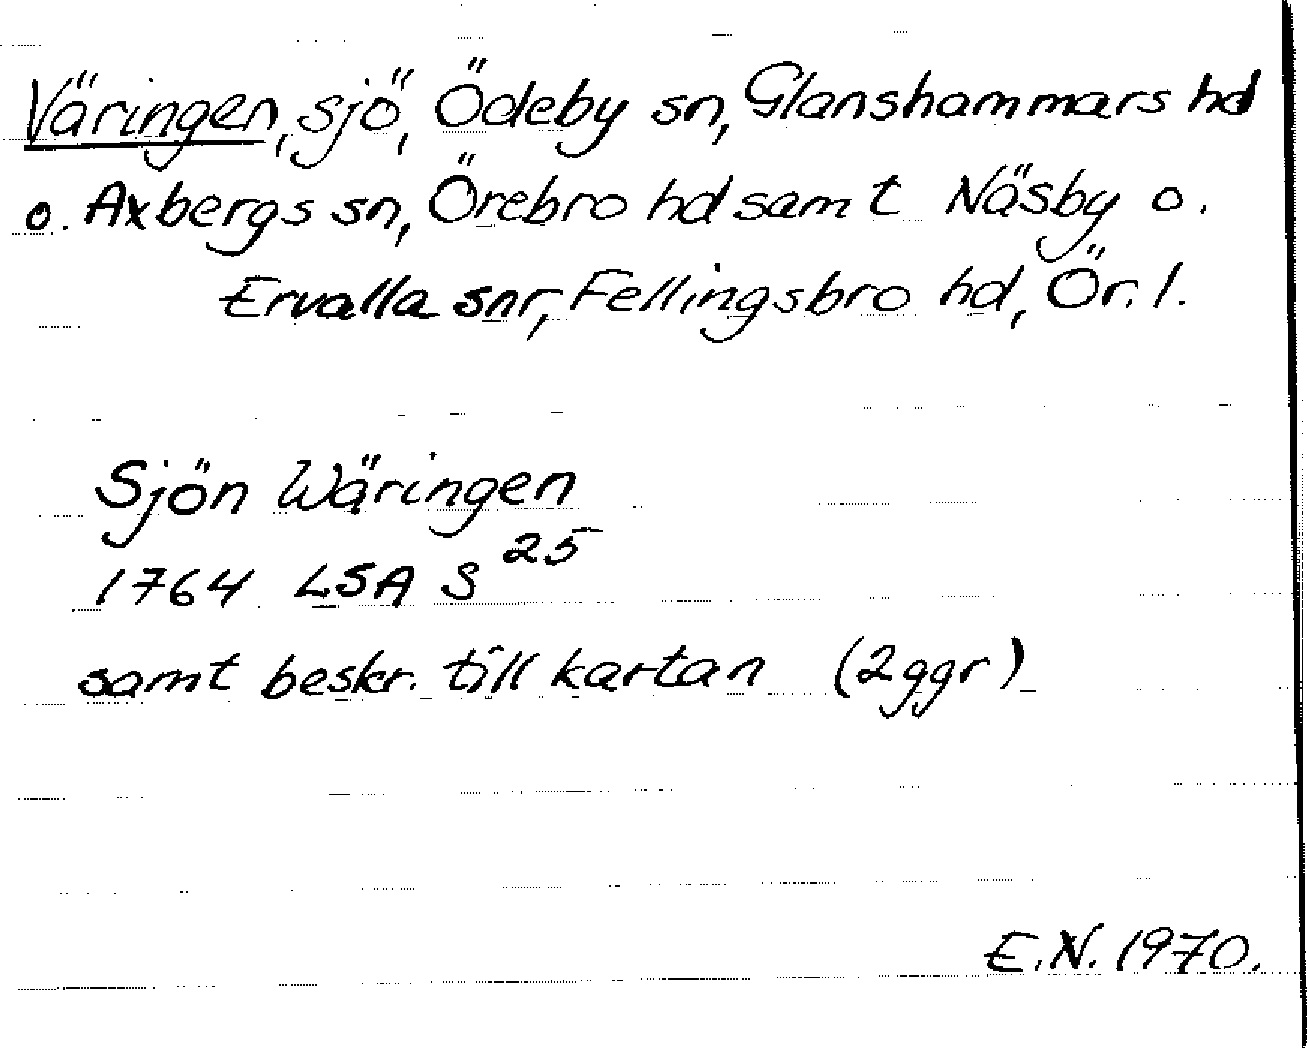 Väringen, sjö, Ödeby sn, Glanshammars hd
o. Axbergs sn, Örebro hd samt Näsby o.
Ervalla snr, Fellingsbro hd, Ör. l.
Sjön Wäringen
1764 LSA S 25
samt beskr. till kartan (2ggr)
E.N. 1970.